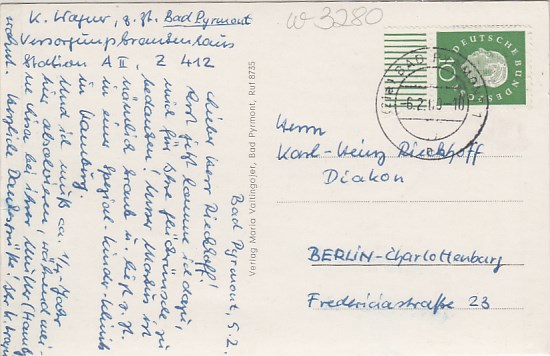 K. Wagner, z. Zt. Bad Pyrmont
Versorgungskrankenhaus
Station A II, Z 412
Bad Pyrmont, 5.2.
Lieber Herr Rieckhoff!
Erst jetzt komme ich dazu,
mich für Ihre Glückwünsche zu
bedanken! Unser Markus ist
nämlich krank u. liegt z. Zt.
in einer Spezial-Kinder-Klinik
in Hamburg.
Und ich muß ca. 1/4 Jahr
hier absolvieren, während mei-
ne bei ihrer Mutter
wohnt. Herzliche
Verlag Maria Voltingojer, Bad Pyrmont, Ruf 8735
W 3280
DEUTSCHE BUNDESPOST
10
BAD PYRMONT
-6.2.
Herrn
Karl-Heinz Rieckhoff
Diakon
BERLIN-Charlottenburg
Fredericiastraße 23